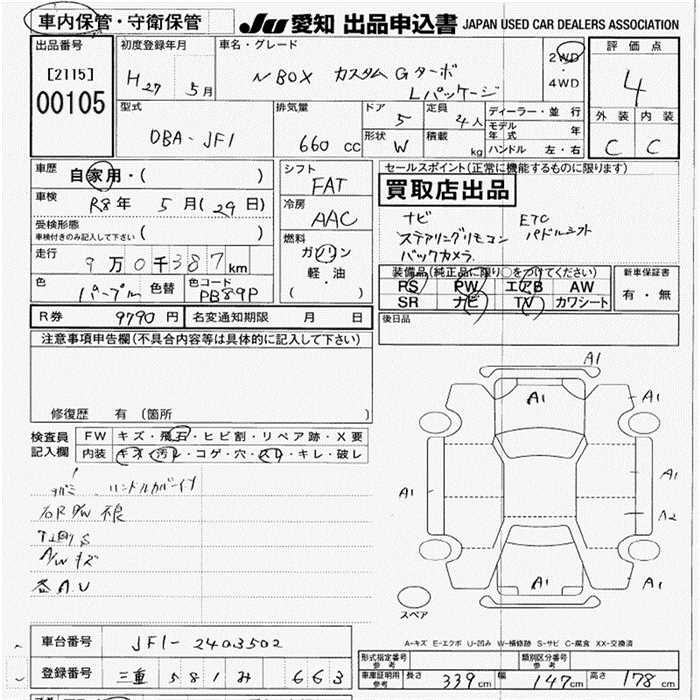 車内保管・守衛保管
JU 愛知 出品申込書 JAPAN USED CAR DEALERS ASSOCIATION
出品番号
[2115]
00105
初度登録年月
H27 5月
車名・グレード
N BOX カスタムGターボ
Lパッケージ
2WD
・
4WD
評価点
4
外装 内装
C C
型式
DBA-JF1
排気量
660 cc
ドア
5
定員
4人
形状
W
積載
kg
ディーラー・並行
モデル年式 年
ハンドル 左・右
車歴
自家用・( )
車検
R8年 5月(29日)
受検形態
車検付きのみ記入して下さい ( )
走行
9万0千387km
色
パープル
色替
色コード
PB89P
シフト
FAT
冷房
AAC
燃料
ガソリン
軽・油
( )
セールスポイント(正常に機能するものに限ります)
買取店出品
ナビ ETC
ステアリングリモコン パドルシフト
バックカメラ
装備品(純正品に限り○をつけてください)
PS PW エアB AW
SR ナビ TV カワシート
新車保証書
有・無
R券 9790円 名変通知期限 月 日
後日品
注意事項申告欄(不具合内容等は具体的に記入して下さい)
修復歴 有 (箇所 )
検査員
記入欄
FW キズ・飛石・ヒビ割・リペア跡・X要
内装 キズ・汚レ・コゲ・穴・スレ・キレ・破レ
ハンドルカバー付
右R P/W 不良
A/Wキズ
各A.U
A1
A1
A1
A1
A1
A2
A1
スペア
A-キズ E-エクボ U-凹み W-補修跡 S-サビ C-腐食 XX-交換済
車台番号 JF1-2403502
登録番号 三重 581 み 663
形式指定番号
参考
類別区分番号
参考
車庫証明用
参考
長さ 339cm 幅 147cm 高さ 178cm